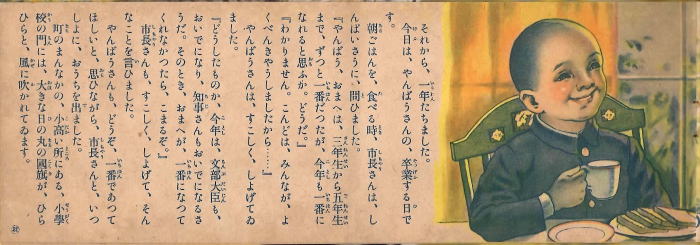 それから、一年たちました。
今日は、やんばうさんの、卒業する日で
す。
朝ごはんを、食べる時、市長さんは、し
んぱいさうに、問ひました。
『やんばう、おまへは、三年生から五年生
まで、ずつと一番だつたが、今年も一番に
なれると思ふか。どうだ。』
『わかりません。こんどは、みんなが、よ
くべんきやうしましたから……』
やんばうさんは、すこしく、しよげてゐ
ました。
『どうしたものか、今年は、文部大臣も、
おいでになり、知事さんもおいでになるさ
うだ。そのとき、おまへが、一番になつて
くれなかつたら、こまるぞ。』
市長さんも、すこしく、しよげて、そん
なことを言ひました。
やんばうさんも、どうぞ、一番であつて
ほしいと、思ひながら、市長さんと、いつ
しよに、おうちを出ました。
町のまんなかの、小高い所にある、小學
校の門には、大きな日の丸の國旗が、ひら
ひらと、風に吹かれてゐます。